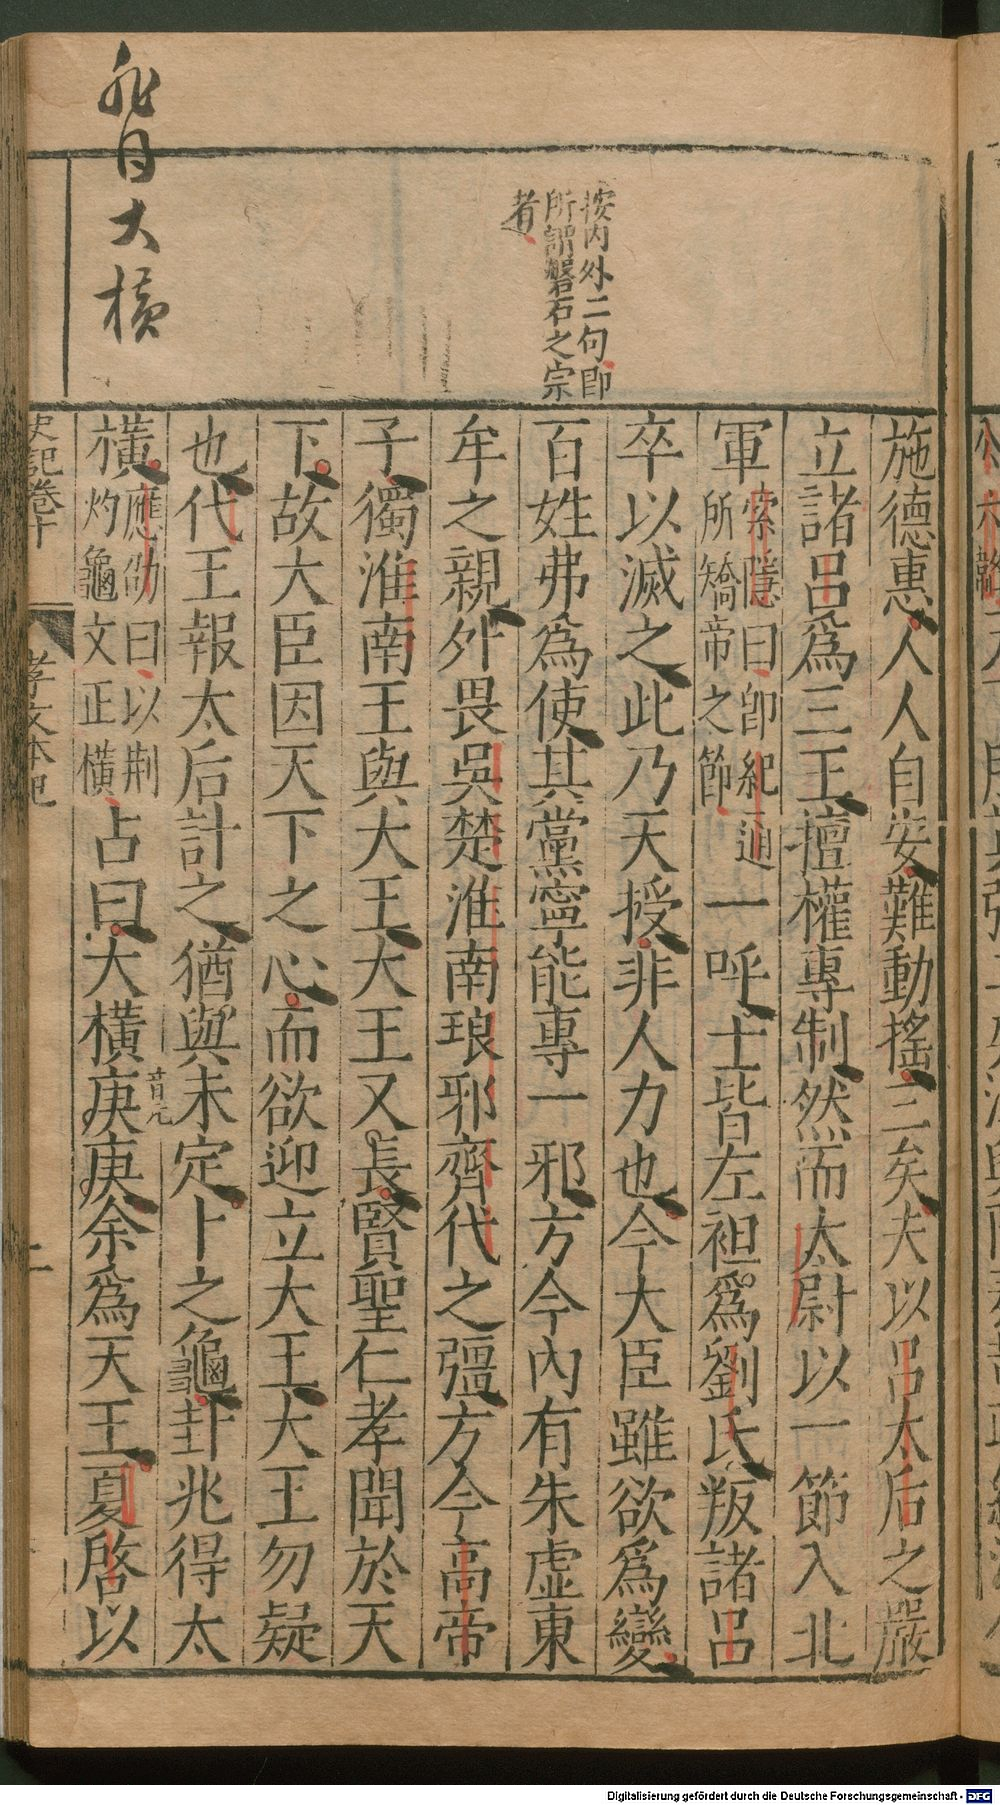 大橫
按内外二句即
所謂磐石之宗
者
施德惠人人自安難動搖三矣夫以呂太后之嚴
立諸呂爲三王擅權專制然而太尉以一節入北
軍索隱曰即紀通所矯帝之節一呼士皆左袒爲劉氏叛諸呂
卒以滅之此乃天授非人力也今大臣雖欲爲變
百姓弗爲使其黨寧能專一邪方今內有朱虛東
牟之親外畏吳楚淮南琅邪齊代之彊方今高帝
子獨淮南王與大王大王又長賢聖仁孝聞於天
下故大臣因天下之心而欲迎立大王大王勿疑
也代王報太后計之猶與未定卜之龜卦兆得太
橫應劭曰以荆灼龜文正橫占曰大橫庚庚余爲天王夏啓以
史記卷十
孝文本紀
二
Digitalisierung gefördert durch die Deutsche Forschungsgemeinschaft - DFG